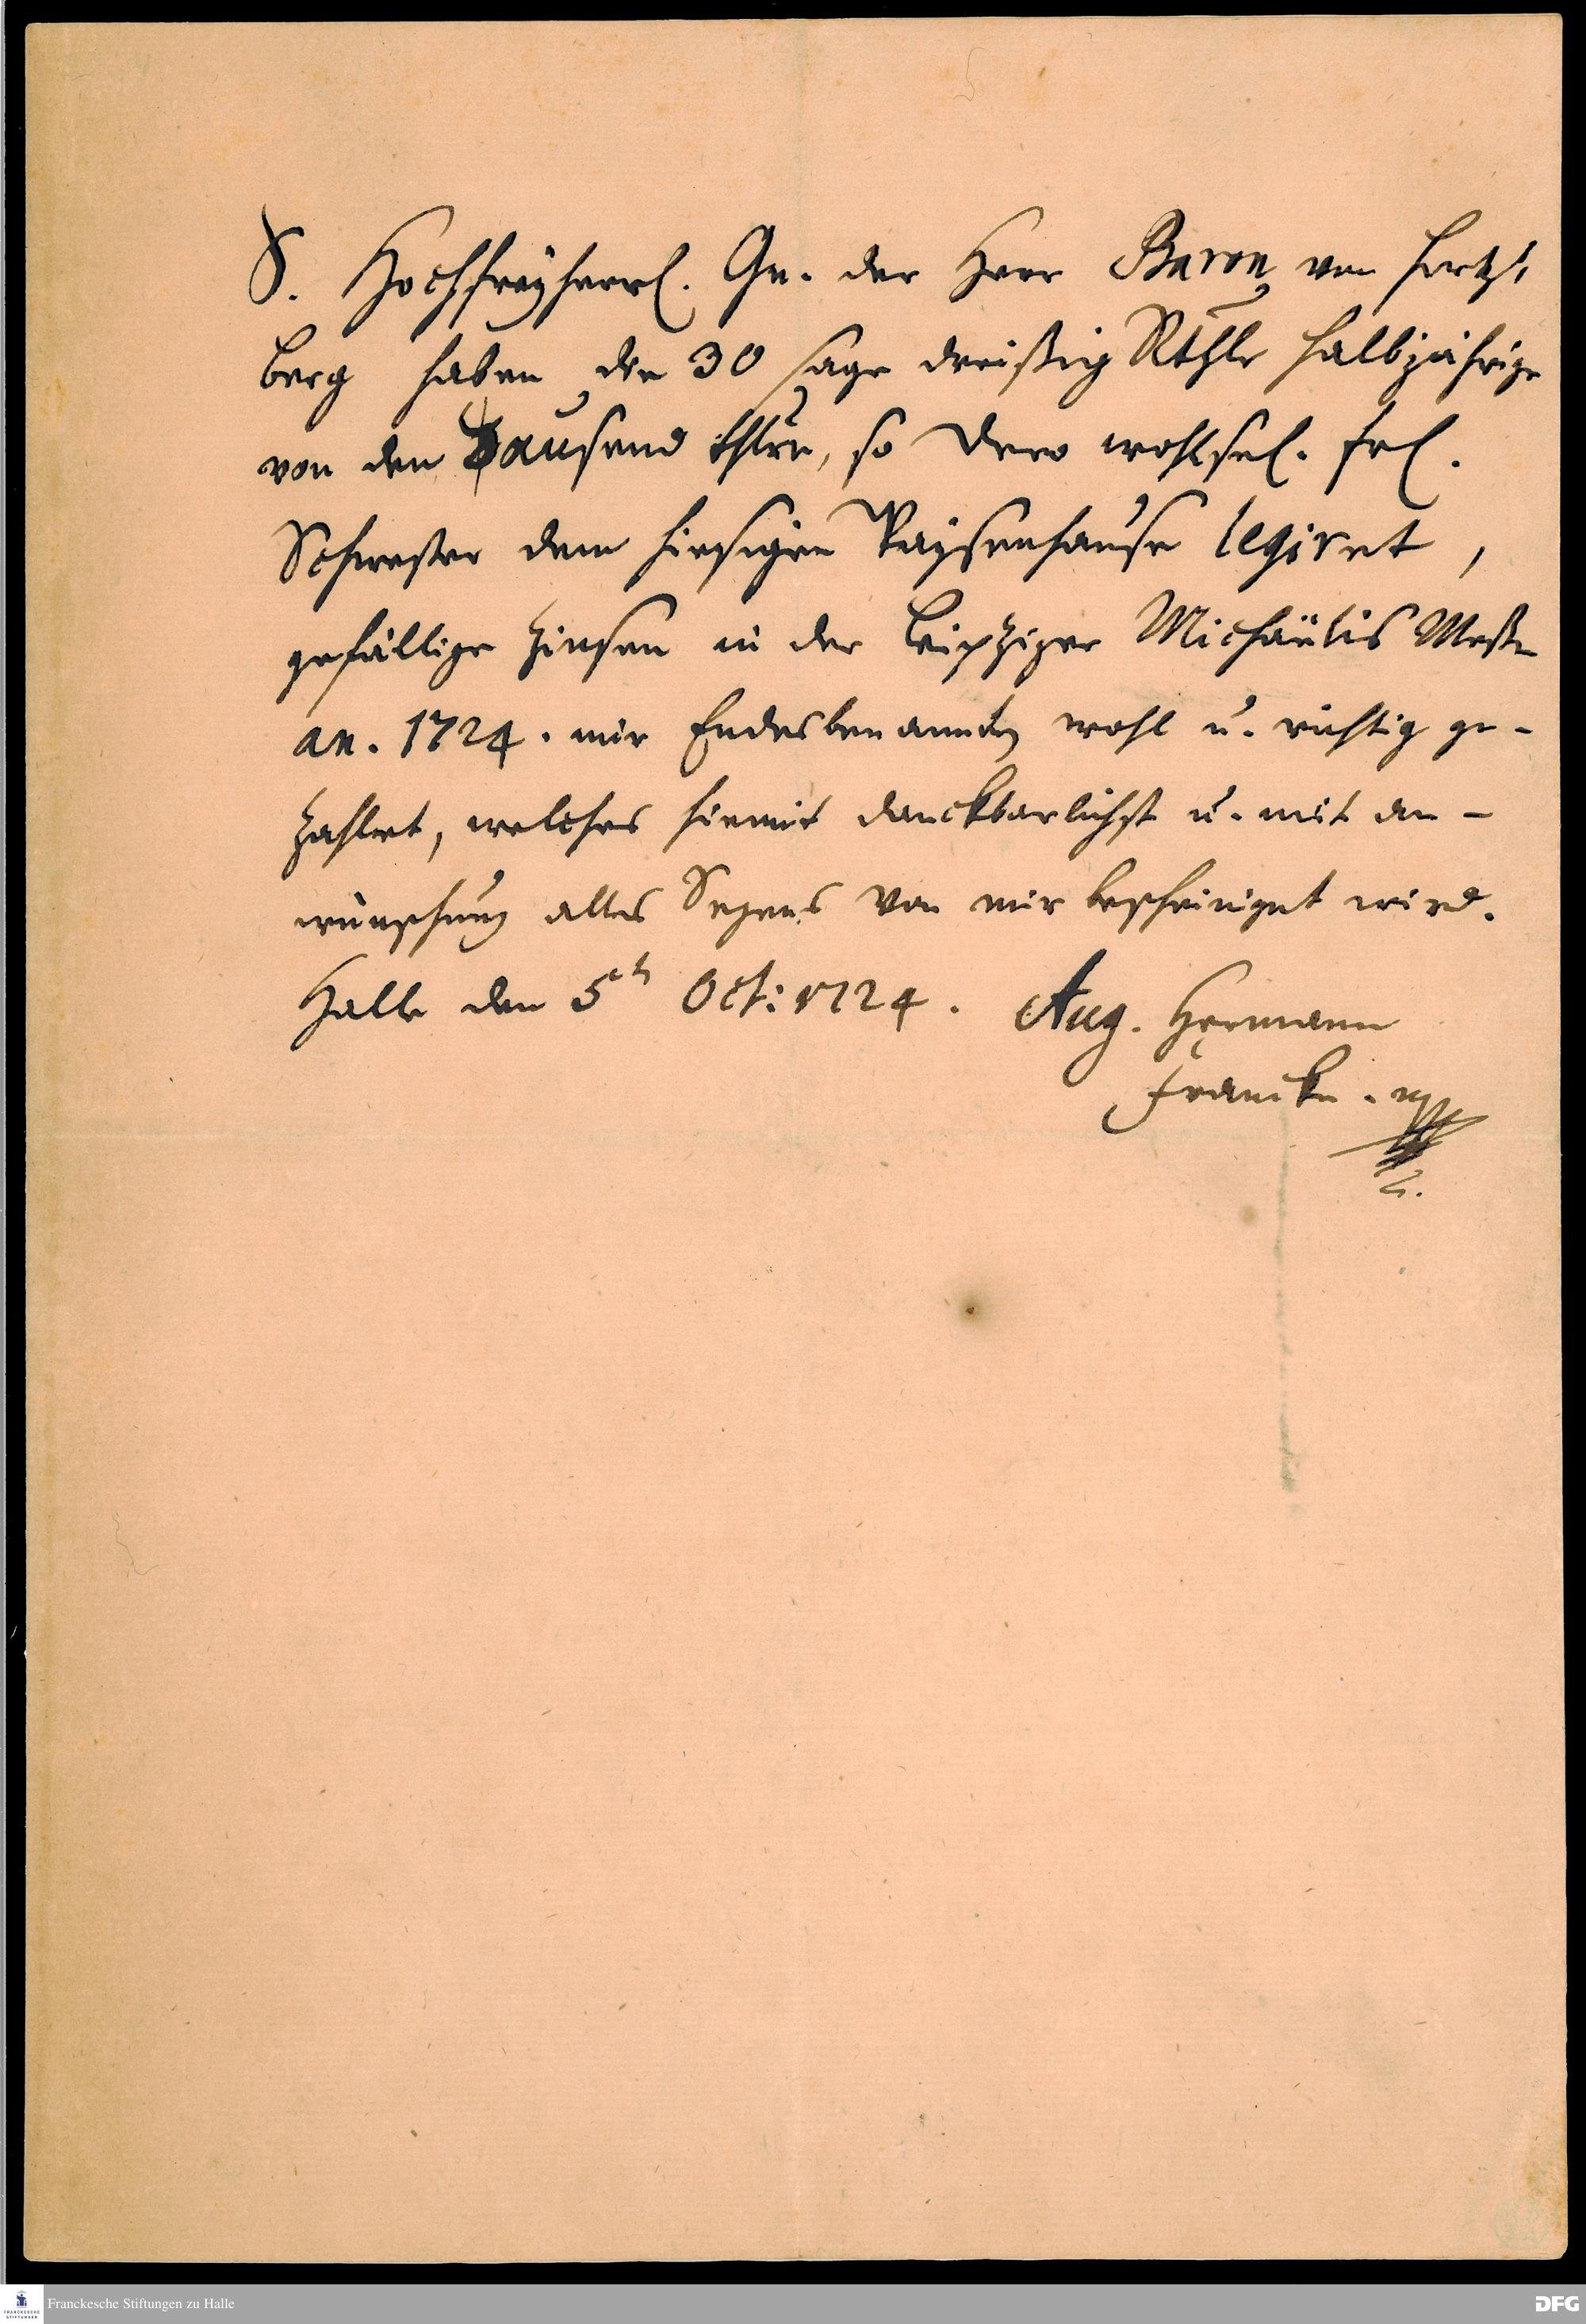 S. Hochfreyherrl. Gn. der Herr Baron von Hertz-
berg haben die 30 sage dreißig Rthlr halbjährige
von den Tausend thlrn, so Dero wohlsel. Frl.
Schwester dem hiesigen Waysenhause legiret,
gefällige Zinsen in der Leipziger Michäelis Meße
an. 1724. mir Endesbenannten wohl u. richtig ge-
zahlet, welches hiemit danckbarlichst u. mit an-
wünschung alles Segens von mir bescheiniget wird.
Halle den 5th Oct: 1724. Aug. Hermann
Francke. mp
Franckesche Stiftungen zu Halle
DFG